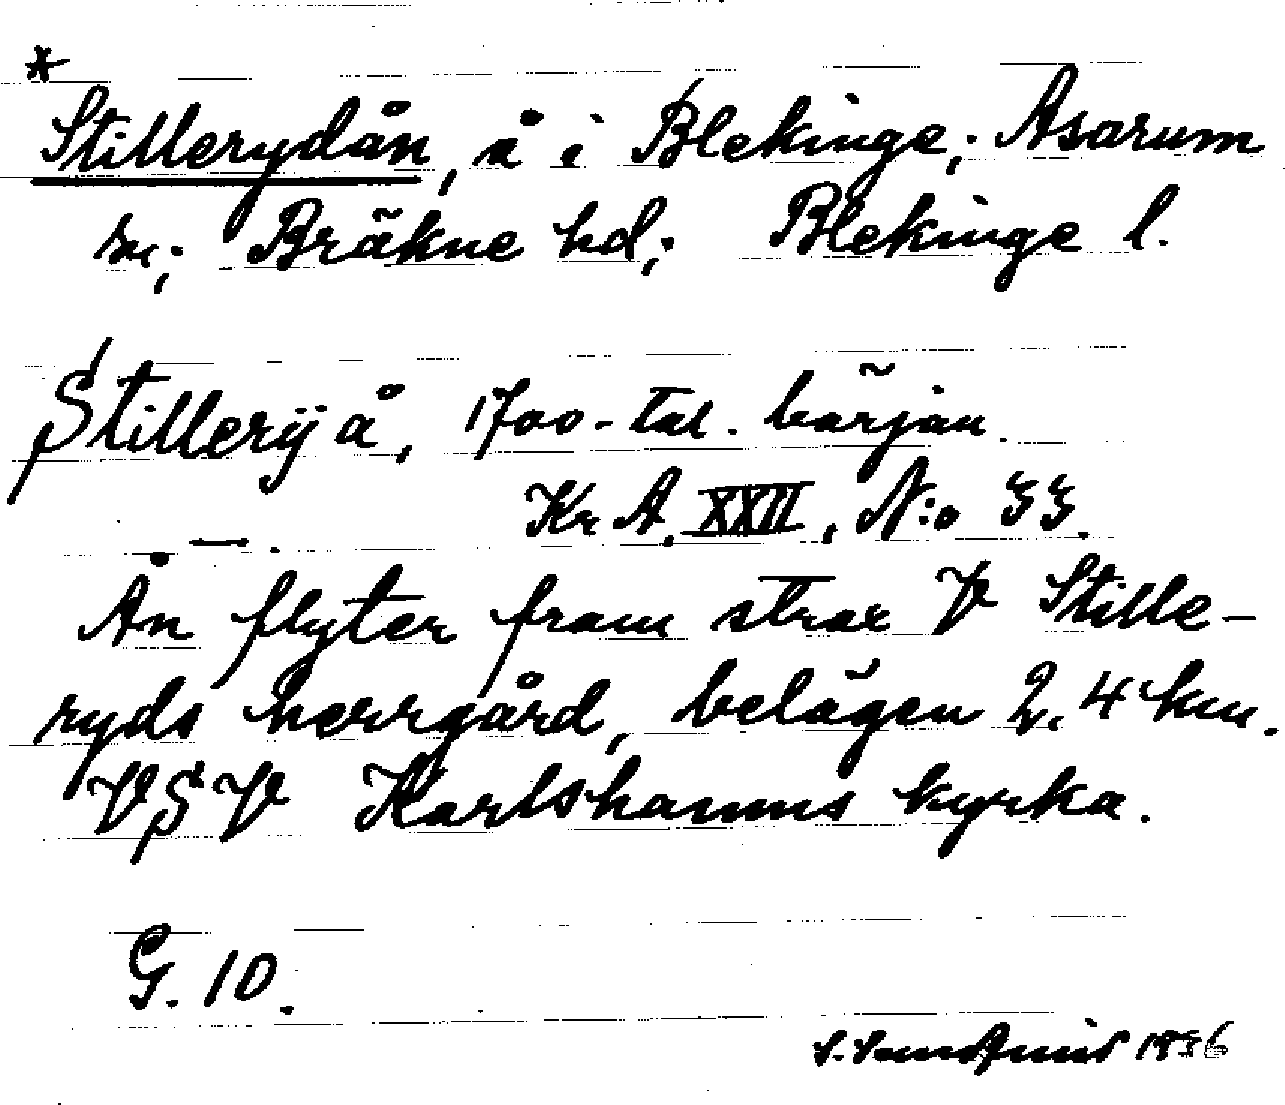 *
Stillerydån, å i Blekinge; Asarum
sn; Bräkne hd; Blekinge l.
Stillerÿ å, 1700-tal. början.
Kr A. XXII, N:o 33.
— .
Ån flyter fram strax V Stille-
ryds herrgård, belägen 2,4 km.
VSV Karlshamns kyrka.
G. 10.
S. 1936